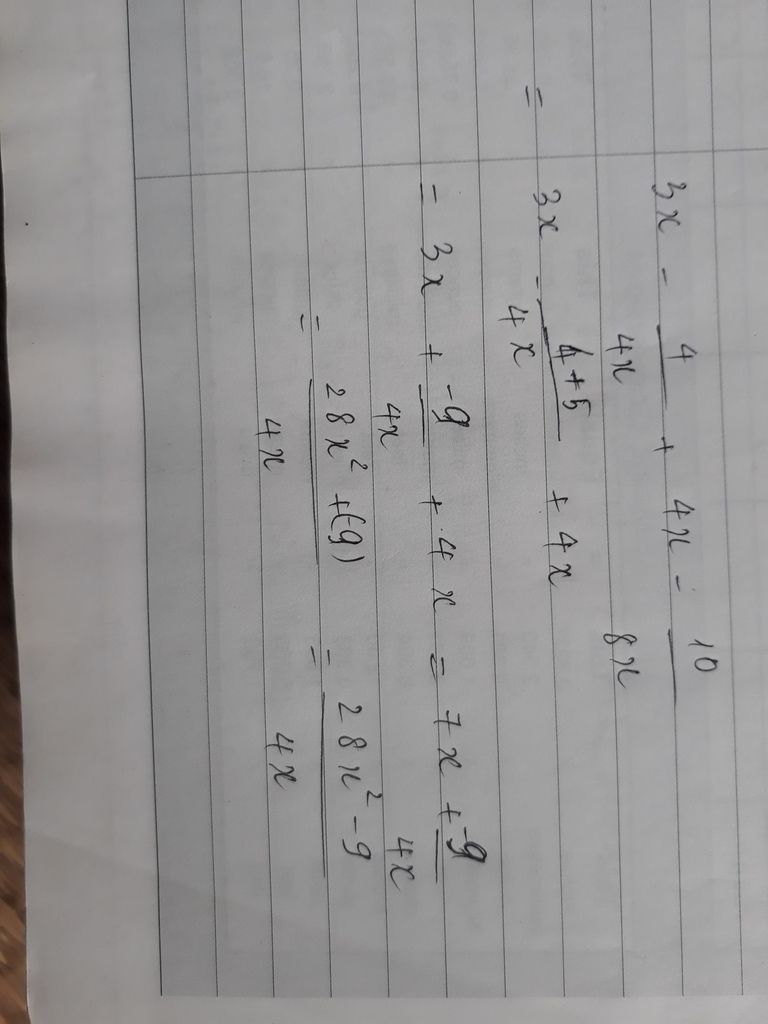 3x - 4/4x + 4x - 10/8x
= 3x - 4+5/4x + 4x
= 3x + -9/4x + 4x = 7x + -9/4x
= 28x² + (-9)/4x = 28x² - 9/4x